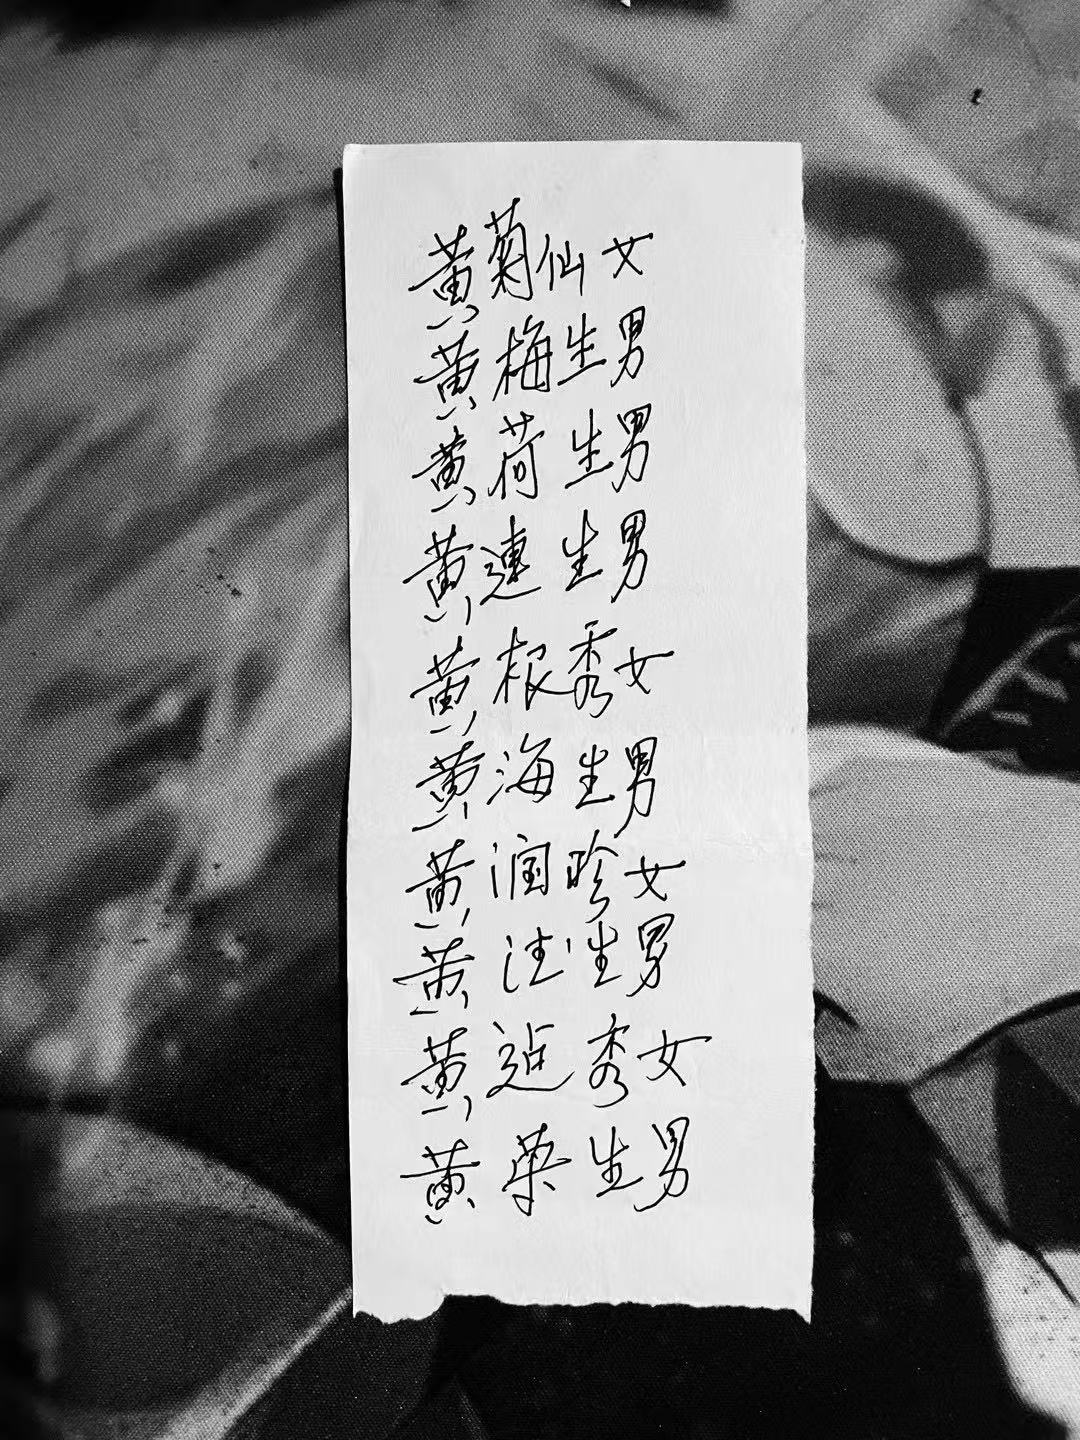 黄菊仙女
黄梅生男
黄荷生男
黄連生男
黄根秀女
黄海生男
黄润珍女
黄注生男
黄近秀女
黄荣生男